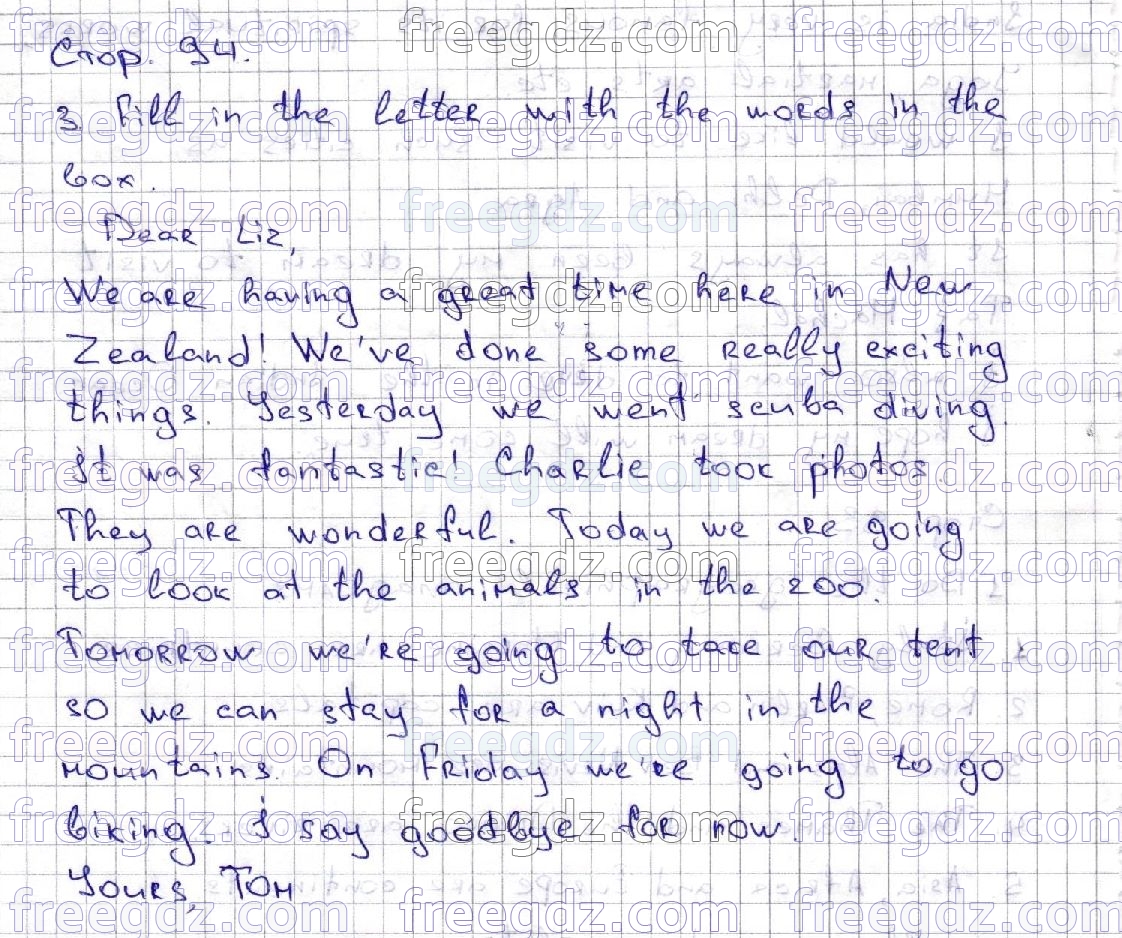 Стор. 94.
3 Fill in the letter with the words in the
box.
Dear Liz,
We are having a great time here in New
Zealand! We've done some really exciting
things. Yesterday we went scuba diving.
It was fantastic! Charlie took photos.
They are wonderful. Today we are going
to look at the animals in the zoo.
Tomorrow we're going to take our tent
so we can stay for a night in the
mountains. On Friday we're going to go
biking. I say goodbye for now.
Yours, Tom
freegdz.com